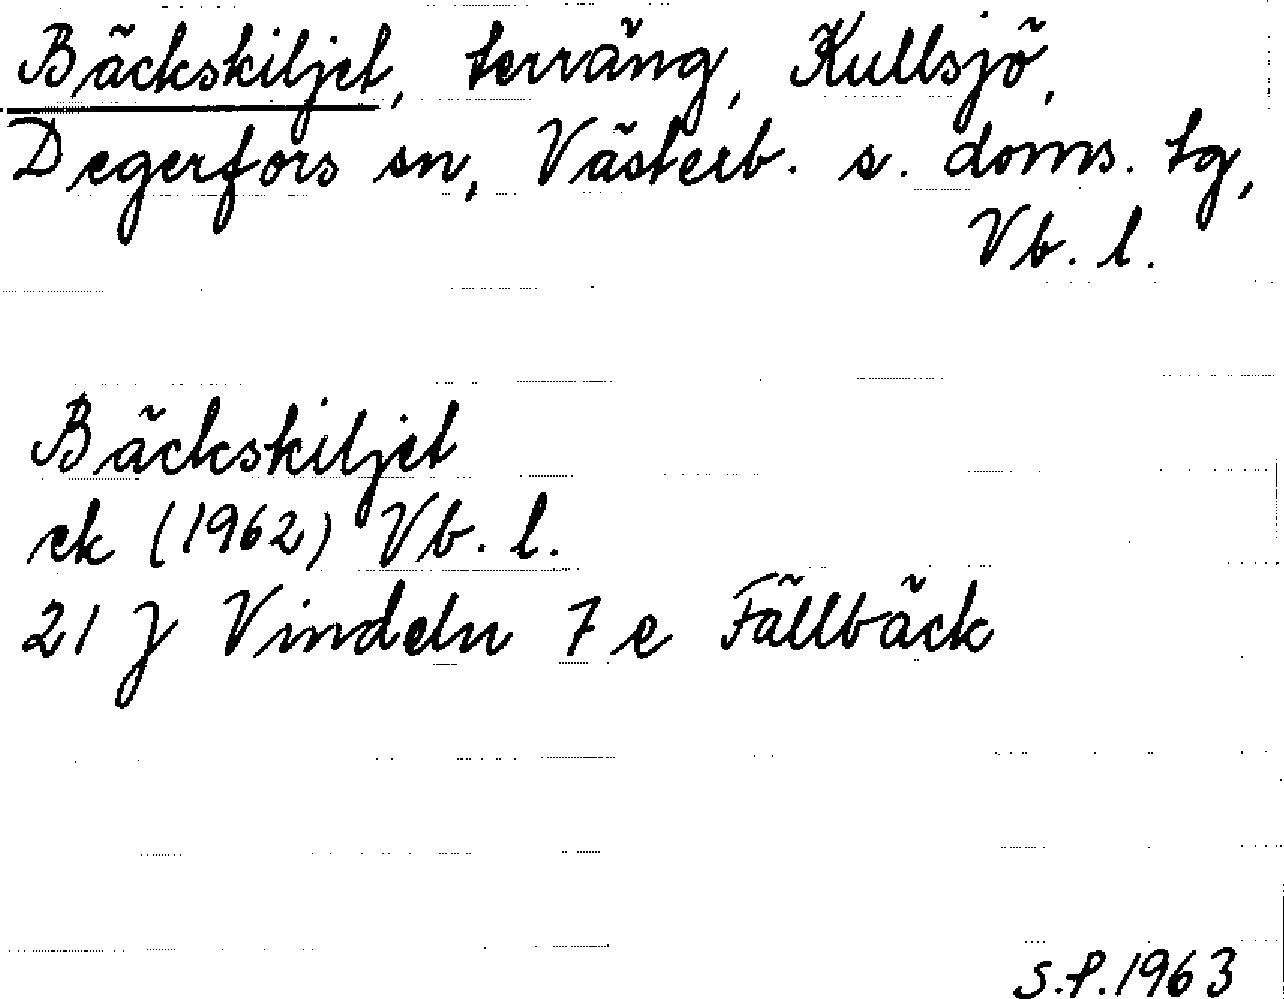 Bäckskiljet, terräng, Kullsjö,
Degerfors sn, Västerb. s. doms. tg,
Vb. l.
Bäckskiljet
ek (1962) Vb. l.
21 J Vindeln 7 e Fällbäck
S.P. 1963